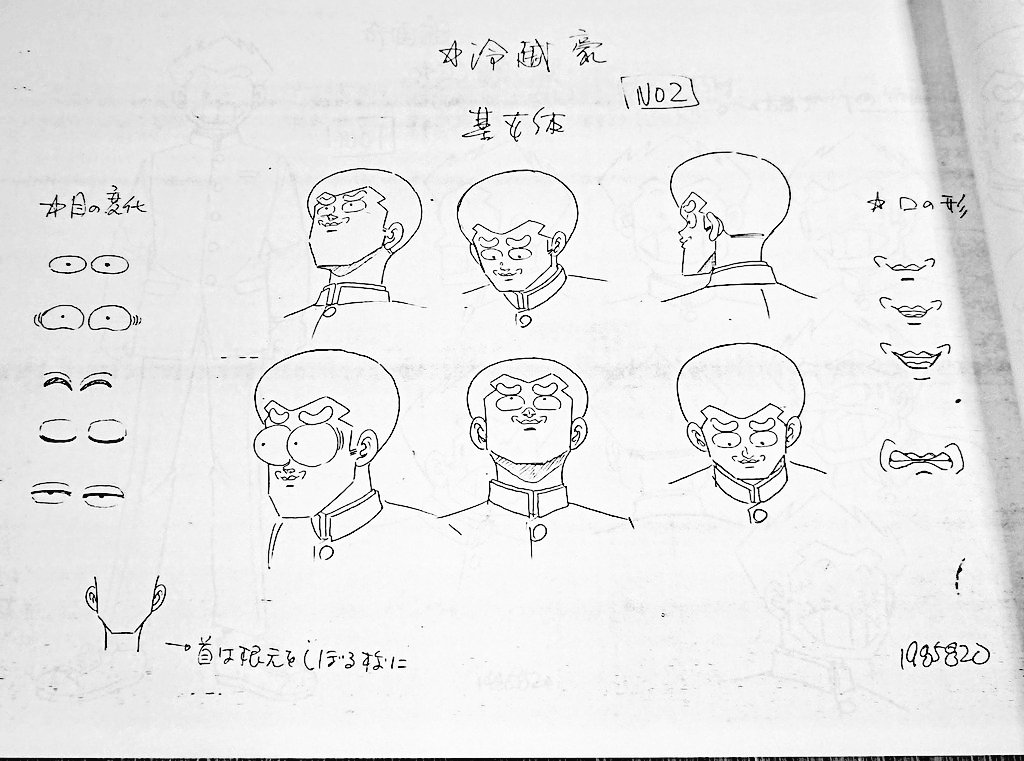 ☆冷越 豪
NO2
基本体
☆目の変化
☆口の形
→首は根元をしぼる様に
1985820